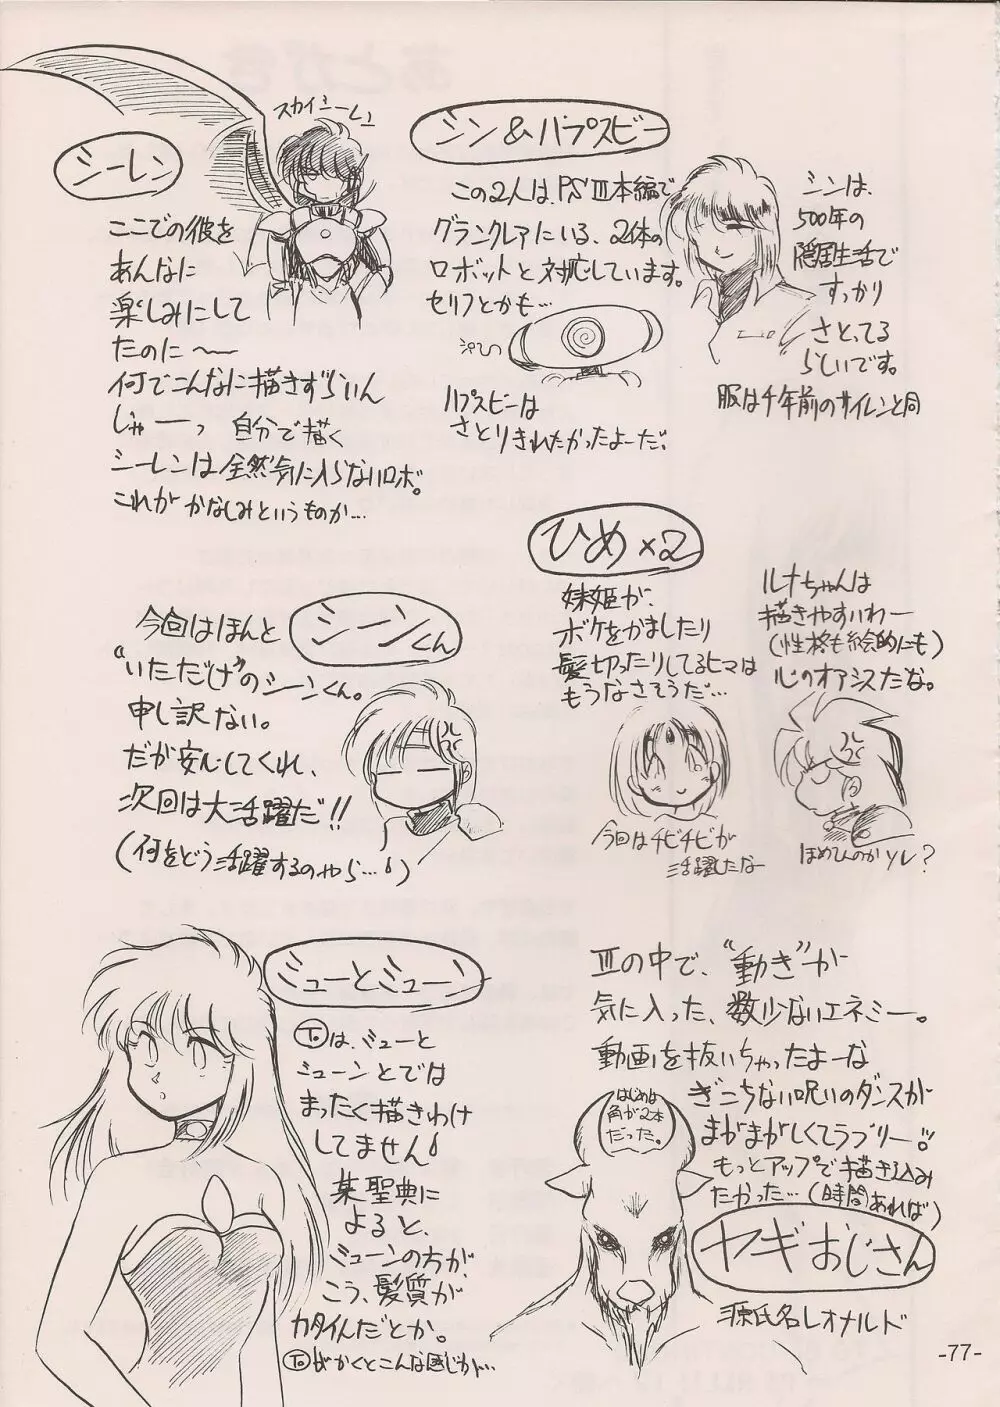 シーレン
スカイミーレュ
ここでの彼を
あんなに
楽しみにして
たのに〜
何でこんなに描きずらいん
じゃーっ 自分で描く
シーレンは全然気に入らないロボ。
これが かなしみというものか…
シン&ハプスビー
この2人は、PSⅢ本編で
グランクレアにいる、2体の
ロボットと対応しています。
セリフとかも…
ハプスビーは
さとりきれたかったよーだ。
シンは、
500年の
隠居生活で
すっかり
さとってる
らしいです。
服は千年前のサイレンと同
ひめ×2
妹姫が、
ボケをかましたり
髪切ったりしてるヒマは
もうなさそうだ…
今回はチビチビが
活躍したなー
ルナちゃんは
描きやすいわー
(性格も絵的にも)
心のオアシスだな。
ほめてんのかソレ?
今回はほんと シーンくん
“いただけ”のシーンくん。
申し訳ない。
だが安心してくれ、
次回は大活躍だ!!
(何をどう活躍するのやら…)
ミューとミューン
Toは、ミューと
ミューンとでは
まったく描きわけ
してません!
某聖典に
よると、
ミューンの方が、
こう、髪質が
カタイんだとか。
Toがかくとこんな感じか…
Ⅲの中で、“動き”が
気に入った、数少ないエネミー。
動画を抜いちゃったよーな
ぎこちない呪いのダンスが
まがまがしくてラブリー!!
もっとアップで描き込み
たかった…(時間あれば)
はじめは
角が2本
だった。
ヤギおじさん
源氏名レオナルド
-77-